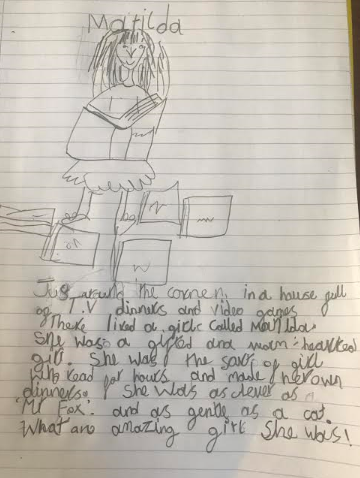 Matilda
Just around the corner, in a house full
of T.V dinners and video games
There lived a girl called Matilda.
She was a gifted and warm-hearted
girl. She was the sort of girl
who read for hours and made her own
dinners. She was as clever as a
'Mr Fox'. and as gentle as a cat.
What an amazing girl She was!